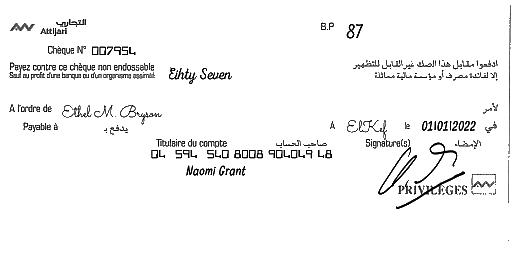 التجاري
Attijari
B.P 87
Chèque N° 007954
Payez contre ce chèque non endossable
Sauf au profit d'une banque ou d'un organisme assimilé
Eihty Seven
ادفعوا مقابل هذا الصك غير القابل للتظهير
إلا لفائدة مصرف أو مؤسسة مالية مماثلة
A l'ordre de Ethel M. Bryson لأمر
Payable à يدفع بـ A El Kef le 01/01/2022 في
Titulaire du compte صاحب الحساب Signature(s) الإمضاء
04 594 540 8008 904049 48
Naomi Grant
PRIVILÈGES